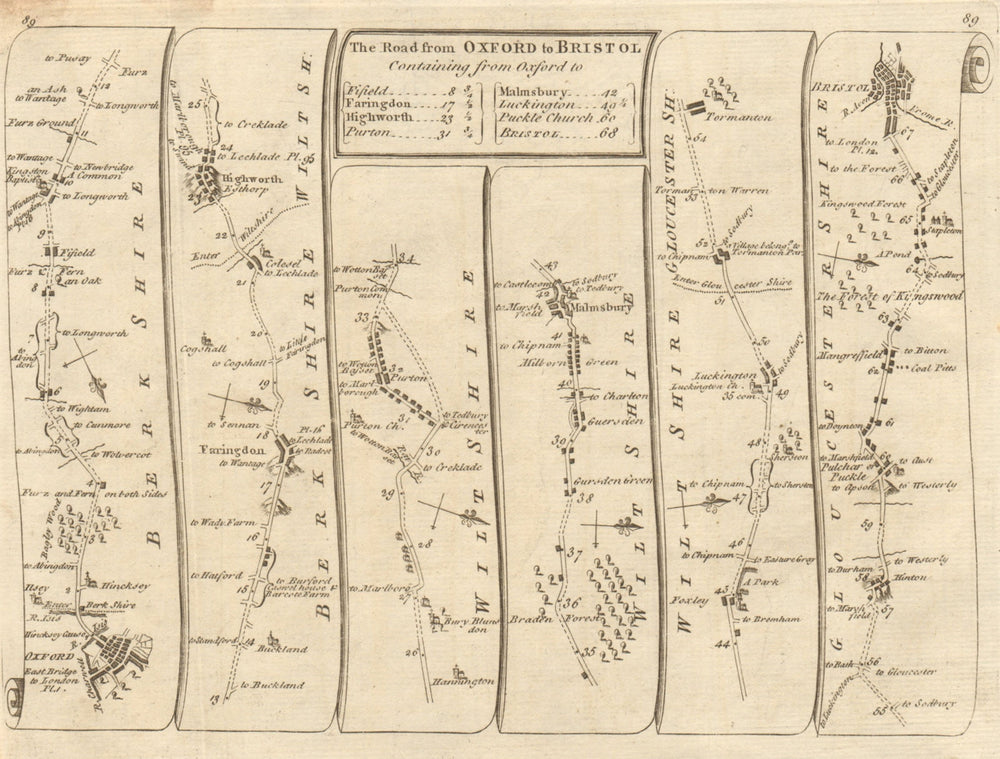 89
89
The Road from OXFORD to BRISTOL
Containing from Oxford to
Fifield 8 3/4
Faringdon 17 1/2
Highworth 23 1/2
Purton 31 3/4
Malmsbury 42
Luckington 49 1/4
Puckle Church 60
BRISTOL 68
to Pusay
Furz
12
an Ash
to Wantage
to Longworth
Furz Ground
11
to Wantage
to Newbridge
A Common
Kingston
Baptist
10
to Wantage
to Longworth
9
Fifield
Furz
Fern
an Oak
8
to Longworth
7
to Abing
don
6
to Wightam
to Cunmore
to Abingdon
to Wolvercot
4
Furz and Fern on both Sides
Bagley Wood
3
to Abingdon
Hincksey
Ifley
2
Enter Berk Shire
R. Isis
Hincksey Cause
OXFORD
East Bridge
to London
Pl. 1.
R. Charwell
BERKSHIRE
25
to Creklade
24
to Lechlade Pl. 95
Highworth
Eythorp
23
22
Wiltshire
Enter
Colesel
to Lechlade
21
20
Cogshall
to Cogshall
to Little
Faringdon
19
to Sennan
18
Pl. 16
to Lechlade
to Radcot
Faringdon
to Wantage
17
to Wade Farm
16
to Hatford
to Burford
Caswelhouse &
Barcote Farm
15
to Standford
14
Buckland
13
to Buckland
BERKSHIRE
WILTSH.
34
to Wotton Bas
set
Purton Com
mon
33
to Wotton
Basset
32
Purton
to Marl
borough
31
to Tedbury
to Cirences
ter
Purton Ch.
to Wotton
30
to Creklade
29
28
to Marlborg
27
Bury Bluns
don
26
Hannington
WILTSHIRE
43
to Castlecom
to Sodbury
to Tedbury
42
to Marsh
field
Malmsbury
41
to Chipnam
Milborn Green
40
to Charlton
Guersden
39
Gursden Green
38
37
36
Braden Forest
35
WILTSHIRE
Tormanton
54
Tormanton Warren
53
to Sodbury
52
Village belong. to
Tormanton Par.
to Chipnam
Enter Gloucester Shire
51
50
to Sodbury
Luckington
Luckington Ch.
35 com.
49
48
Sherston
to Chipnam
to Sherston
47
46
to Chipnam
to Easture Gray
A Park
45
Foxley
to Bremham
44
WILTSHIRE
GLOUCESTER SH.
BRISTOL
R. Avon
Frome R.
67
to London
Pl. 12.
to the Forest
66
to Stapleton
to Gloucester
Kingswood Forest
65
Stapleton
A Pond
64
to Sodbury
The Forest of Kingswood
63
Mangresfield
to Bitton
62
Coal Pitts
to Boynton
61
to Marshfield
60
to Aust
Pulchar or
Puckle
to Apson
to Westerly
59
to Westerly
to Durham
58
Hinton
to Marsh
field
57
to Bath
56
to Gloucester
to Luckington
55
to Sodbury
GLOUCESTERSHIRE